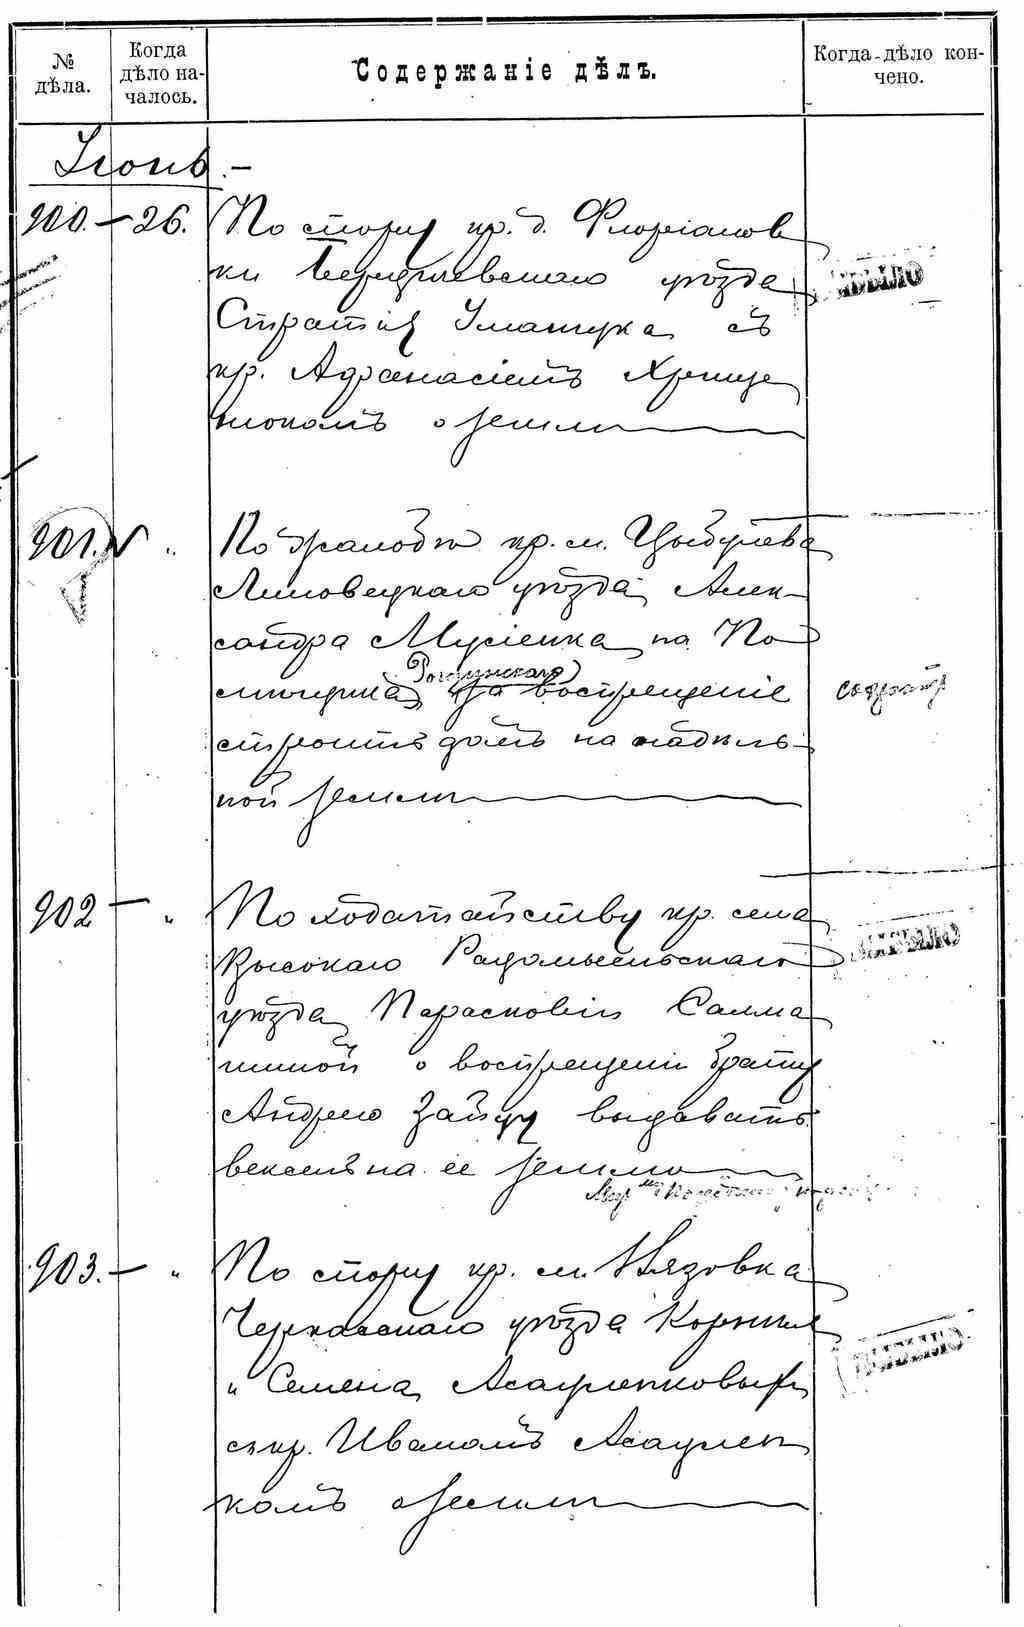 № дѣла.
Когда дѣло на-
чалось.
Содержаніе дѣлъ.
Когда дѣло кон-
чено.
Іюнь.-
900.- 26.
По спору кр. д. Флоріанов
ки Бердичевскаго уѣзда
Стратія Уманчука съ
кр. Афанасіемъ Хреще
нюкомъ о землѣ
901. "
По жалобѣ кр. м. Цыбулева
Липовецкаго уѣзда Алек-
сандра Мусіенка на По
мѣщика за воспрещеніе
строить домъ на надѣль-
ной землѣ
902 - "
По ходатайству кр. села
Высокаго Радомысльскаго
уѣзда Парасковіи
о воспрещеніи брату
Андрею Зайцу выдавать
вексель на ее землю
903. - "
По спору кр. м. Вязовка
Черкасскаго уѣзда Корнилія
и Семена Асауленковыхъ
съ кр. Иваномъ Асаулен
комъ о землѣ
ВЫБЫЛО
ВЫБЫЛО
ВЫБЫЛО